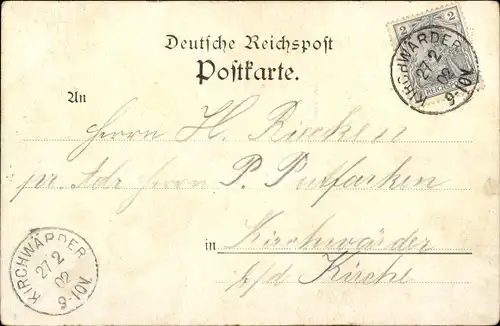 Deutsche Reichspost
Postkarte.
2 2
KIRCHWÄRDER
27 2
02
9-10V
An
Herrn H. Rieeken
pr. Adr Herrn P. Putfarken
in Kirchwärder
b/d Kirche
KIRCHWÄRDER
27 2
02
9-10V